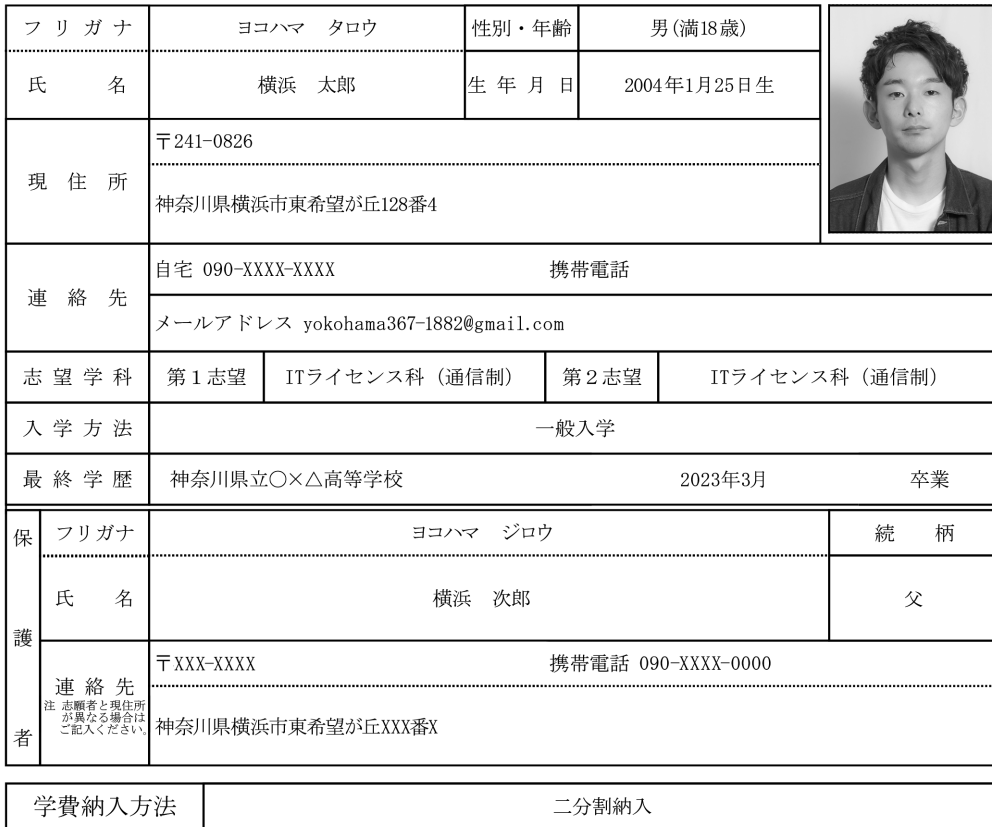 フリガナ ヨコハマ タロウ 性別・年齢 男(満18歳)
氏名 横浜 太郎 生年月日 2004年1月25日生
現住所
〒241-0826
神奈川県横浜市東希望が丘128番4
連絡先
自宅 090-XXXX-XXXX 携帯電話
メールアドレス yokohama367-1882@gmail.com
志望学科 第1志望 ITライセンス科(通信制) 第2志望 ITライセンス科(通信制)
入学方法 一般入学
最終学歴 神奈川県立○×△高等学校 2023年3月 卒業
保護者
フリガナ ヨコハマ ジロウ 続柄
氏名 横浜 次郎 父
連絡先
注 志願者と現住所
が異なる場合は
ご記入ください。
〒XXX-XXXX 携帯電話 090-XXXX-0000
神奈川県横浜市東希望が丘XXX番X
学費納入方法 二分割納入